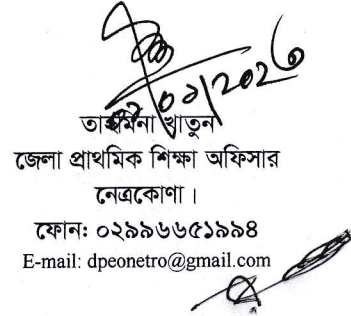 তাহমিনা খাতুন
জেলা প্রাথমিক শিক্ষা অফিসার
নেত্রকোণা ।
ফোন: ০২৯৯৬৬৫১৯৯৪
E-mail: dpeonetro@gmail.com